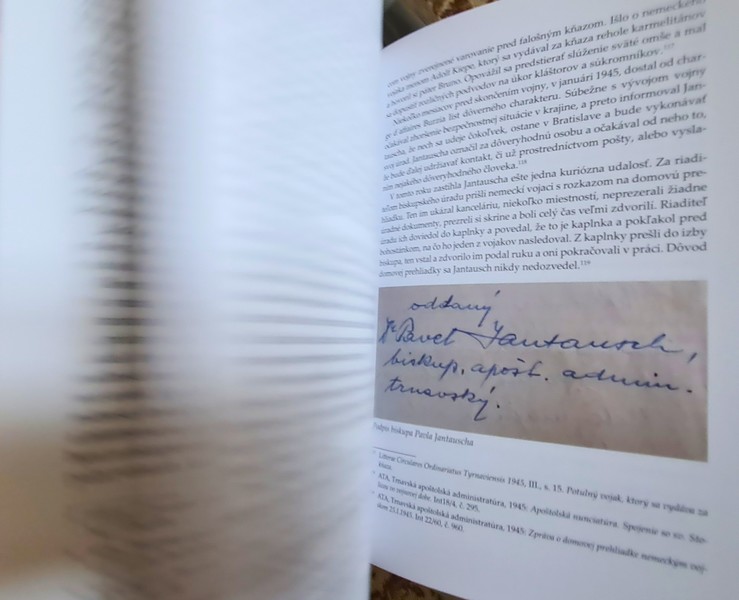 vojny zverejnené varovanie pred falošným kňazom. Išlo o nemeckého
vojaka menom Adolf Kiepe, ktorý sa vydával za kňaza rehole karmelitánov
a hovoril si páter Bruno. Opovážil sa predstierať slúženie sväté omše a mal
sa dopustiť rozličných podvodov na úkor kláštorov a súkromníkov.¹¹⁷
Niekoľko mesiacov pred skončením vojny, v januári 1945, dostal od char-
gé d'affaires Burzia list dôverného charakteru. Súbežne s vývojom vojny
očakával zhoršenie bezpečnostnej situácie v krajine, a preto informoval Jan-
tauscha, že nech sa udeje čokoľvek, ostane v Bratislave a bude vykonávať
svoj úrad. Jantauscha označil za dôveryhodnú osobu a očakával od neho to,
že bude ďalej udržiavať kontakt, či už prostredníctvom pošty, alebo vysla-
ním nejakého dôveryhodného človeka.¹¹⁸
V tomto roku zastihla Jantauscha ešte jedna kuriózna udalosť. Za riadi-
teľom biskupského úradu prišli nemeckí vojaci s rozkazom na domovú pre-
hliadku. Ten im ukázal kanceláriu, niekoľko miestností, neprezerali žiadne
úradné dokumenty, prezreli si skrine a boli celý čas veľmi zdvorilí. Riaditeľ
úradu ich doviedol do kaplnky a povedal, že to je kaplnka a pokľakol pred
bohostánkom, na čo ho jeden z vojakov nasledoval. Z kaplnky prešli do izby
biskupa, ten vstal a zdvorilo im podal ruku a oni pokračovali v práci. Dôvod
domovej prehliadky sa Jantausch nikdy nedozvedel.¹¹⁹
oddaný
Dr Pavel Jantausch,
biskup, apošt. admin.
trnavský.
Podpis biskupa Pavla Jantauscha
Litterae Circulares Ordinariatus Tyrnaviensis 1945, III., s. 15. Potulný vojak, ktorý sa vydáva za
kňaza.
ATA, Trnavská apoštolská administratúra, 1945: Apoštolská nunciatúra. Spojenie so sv. Sto-
licou vo vojnovej dobe. Int18/4, č. 295.
ATA, Trnavská apoštolská administratúra, 1945: Zpráva o domovej prehliadke nemeckým voj-
skom 23.1.1945. Int 22/60, č. 960.